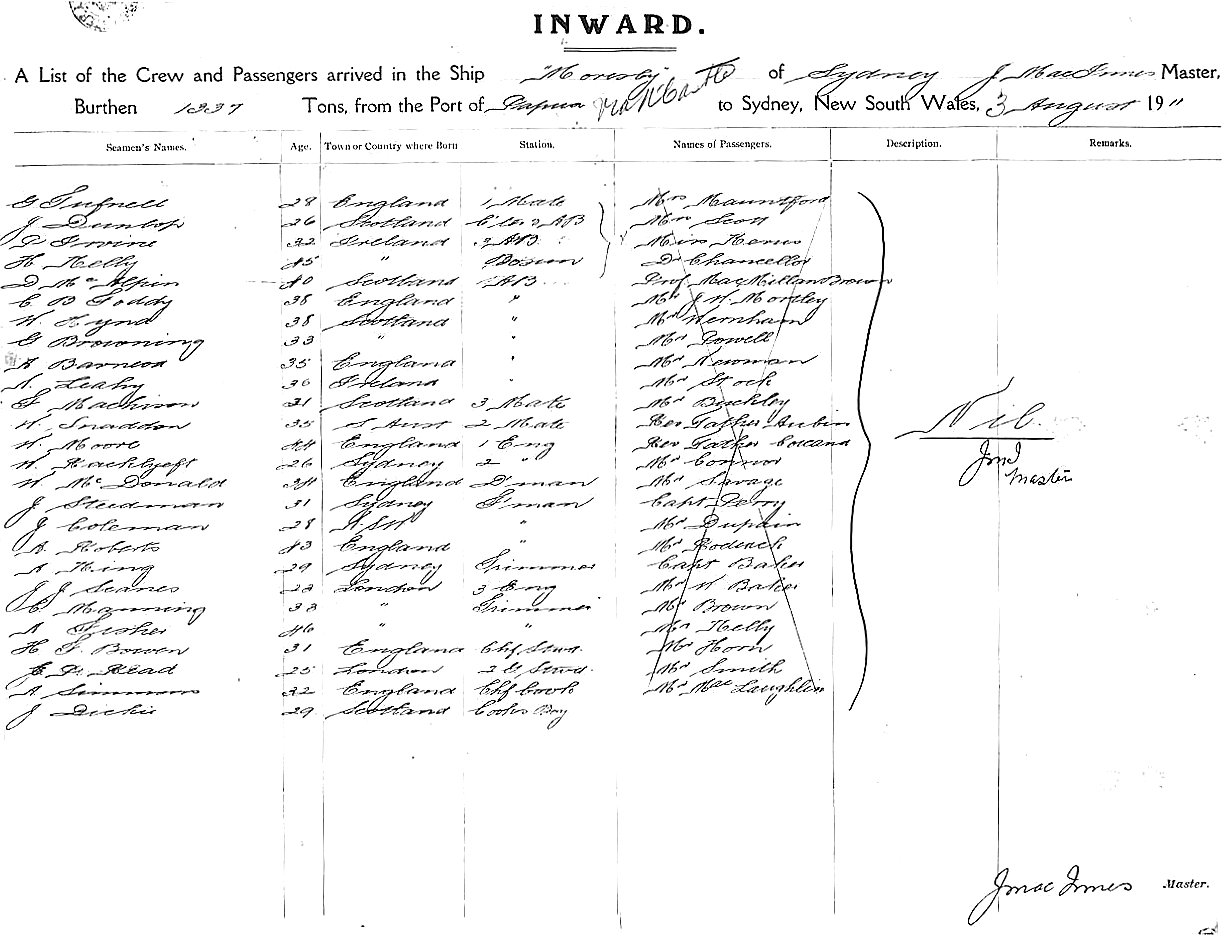 INWARD.
A List of the Crew and Passengers arrived in the Ship "Moresby" of Sydney J MacInnes Master,
Burthen 1337 Tons, from the Port of Papua via N'Castle to Sydney, New South Wales, 3 August 1911
Seamen's Names. Age. Town or Country where Born Station. Names of Passengers. Description. Remarks.
G Tufnell 28 England 1 Mate Mrs Mauntford
J Dunlop 26 Scotland AB Mrs Scott
Irvine 32 Ireland AB Miss
H Kelly 45 " Bosun Dr Chancellor
D McAlpin 40 Scotland AB Prof MacMillan Brown
C B Foddy 38 England " Mr J H Morley
W Hynd 38 Scotland " Mr Wernham
G Browning 33 " " Mr Powell
A 35 England " Mr Newman
A. Leahy 36 Ireland " Mr Stock
F Machison 21 Scotland 3 Mate Mr Buckley
W. Snaddon 35 S Aust 2 Mate Rev Father Aubin
W. Moore 44 England 1 Eng Rev Father
W. 26 Sydney 2 " Mr Connor
W McDonald 34 England D'man Mr Savage
J Steedman 31 Sydney F'man Capt Perry
J Coleman 28 NSW " Mr Dupain
A. Roberts 43 England " Mr
A King 29 Sydney Trimmer Capt Baker
J J Scanes 22 London 3 Eng Mr W Baker
C Manning 33 " Trimmer Mr Brown
A Fisher 46 " " Mr Kelly
H F Bowen 31 England Chf Stwd. Mr Horn
E Read 25 London 2 Stwd. Mr Smith
A Simmons 32 England Chf Cook Mr MacLaughlin
J Dickie 29 Scotland Cooks Boy
Nil.
JmI
Master
J MacInnes Master.